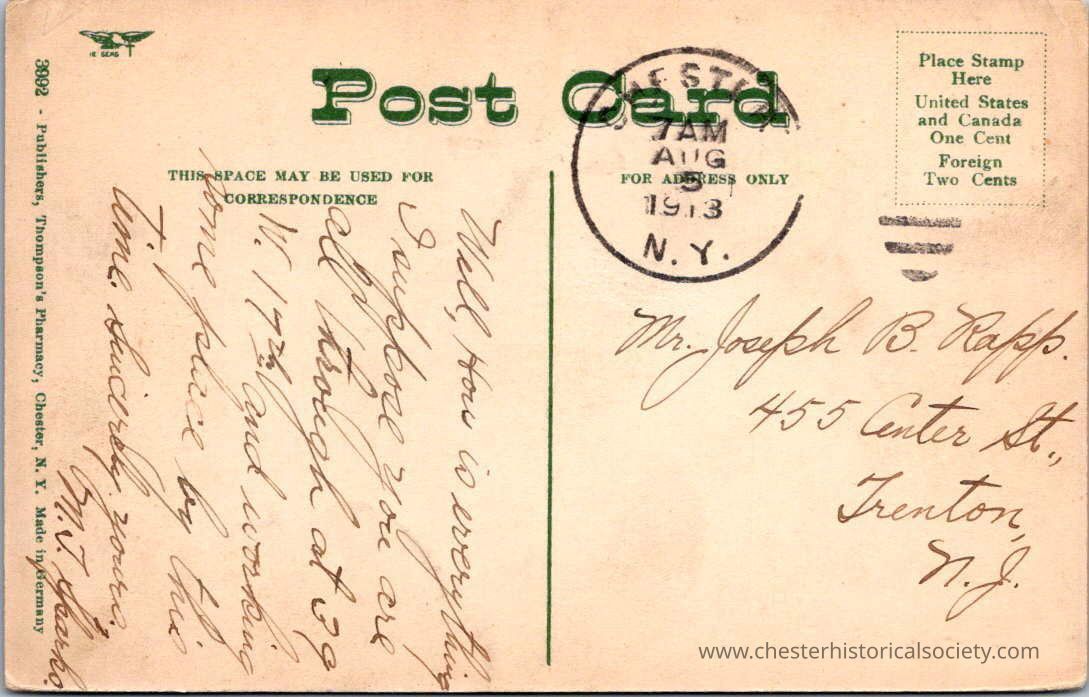 Post Card
THIS SPACE MAY BE USED FOR
CORRESPONDENCE
FOR ADDRESS ONLY
Place Stamp
Here
United States
and Canada
One Cent
Foreign
Two Cents
CHESTER
7 AM
AUG
5
1913
N. Y.
Well, How is everything
I suppose you are
all through at 39
W. 17th and working
some place by this
time. Sincerely yours.
M. J.
Mr. Joseph B. Rapp.
455 Center St.,
Trenton,
N. J.
3992 - Publishers, Thompson's Pharmacy, Chester, N. Y. Made in Germany
www.chesterhistoricalsociety.com